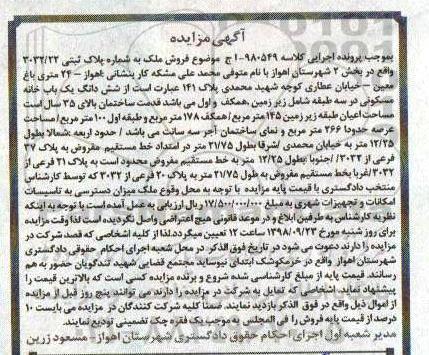 آگهی مزایده
بموجب پرونده اجرایی کلاسه ۹۸۰۵۴۹-۱ ج موضوع فروش ملک به شماره پلاک ثبتی ۳۰۳۲/۲۲
واقع در بخش ۲ شهرستان اهواز با نام متوفی محمد علی مشکه کار پنشانی :اهواز - ۲۴ متری باغ
معین - خیابان عطاری کوچه شهید محمدی پلاک ۱۴۱ عبارت است از شش دانگ یک باب خانه
مسکونی در سه طبقه شامل زیر زمین ،همکف و اول می باشد قدمت ساختمان بالای ۳۵ سال است
مساحت اعیان طبقه زیر زمین ۱۴۵ متر مربع/ همکف ۱۷۸ متر مربع و طبقه اول ۱۰۰ متر مربع / مساحت
عرصه حدودا ۲۶۶ متر مربع و نمای ساختمان آجر سه سانت می باشد / حدود اربعه :شمالا بطول
۱۲/۲۵ متر به خیابان محمدی /شرقا بطول ۲۱/۷۵ متر در امتداد خط مستقیم مفروض به پلاک ۳۷
فرعی از ۳۰۳۲/ /جنوبا بطول ۱۲/۲۵ متر به خط مستقیم مفروض محدود است به پلاک ۲۱ فرعی از
۳۰۳۲/ غربا بخط مستقیم مفروض به طول ۲۱/۷۵ متر به پلاک ۲۰ فرعی از ۳۰۳۲ که توسط کارشناس
منتخب دادگستری با قیمت پایه مزایده با توجه به محل وقوع ملک میزان دسترسی به تاسیسات
امکانات و تجهیزات شهری به مبلغ ۱۷/۵۰۰/۰۰۰/۰۰۰ ریال ارزیابی به عمل آمده است با توجه به اینکه
نظریه کارشناس به طرفین ابلاغ و در موعد قانونی هیچ اعتراضی واصل نگردیده است لذا وقت مزایده
برای روز شنبه مورخ ۱۳۹۸/۰۹/۲۳ ساعت ۱۲ تعیین میگردد.لذا از کلیه اشخاصی که قصد شرکت در
مزایده را دارند دعوت می شود در تاریخ فوق الذکر، در محل شعبه اجرای احکام حقوقی دادگستری
شهرستان اهواز واقع در خرمکوشک ابتدای نیوساید مجتمع قضایی شهید تندگویان حضور به هم
رسانند. قیمت پایه از مبلغ کارشناسی شده شروع و برنده مزایده کسی است که بالاترین قیمت را
پیشنهاد نماید. اشخاصی که تمایل به شرکت در مزایده را دارند می توانند پنج روز قبل از مزایده
از اموال ذیل واقع در فوق الذکر بازدید نمایند. ضمنا کلیه شرکت کنندگان در مزایده می بایست ۱۰
درصد از قیمت پایه فروش را فی المجلس به موجب یک فقره چک تضمینی تودیع نمایند.
مدیر شعبه اول اجرای احکام حقوق دادگستری شهرستان اهواز - مسعود زرین